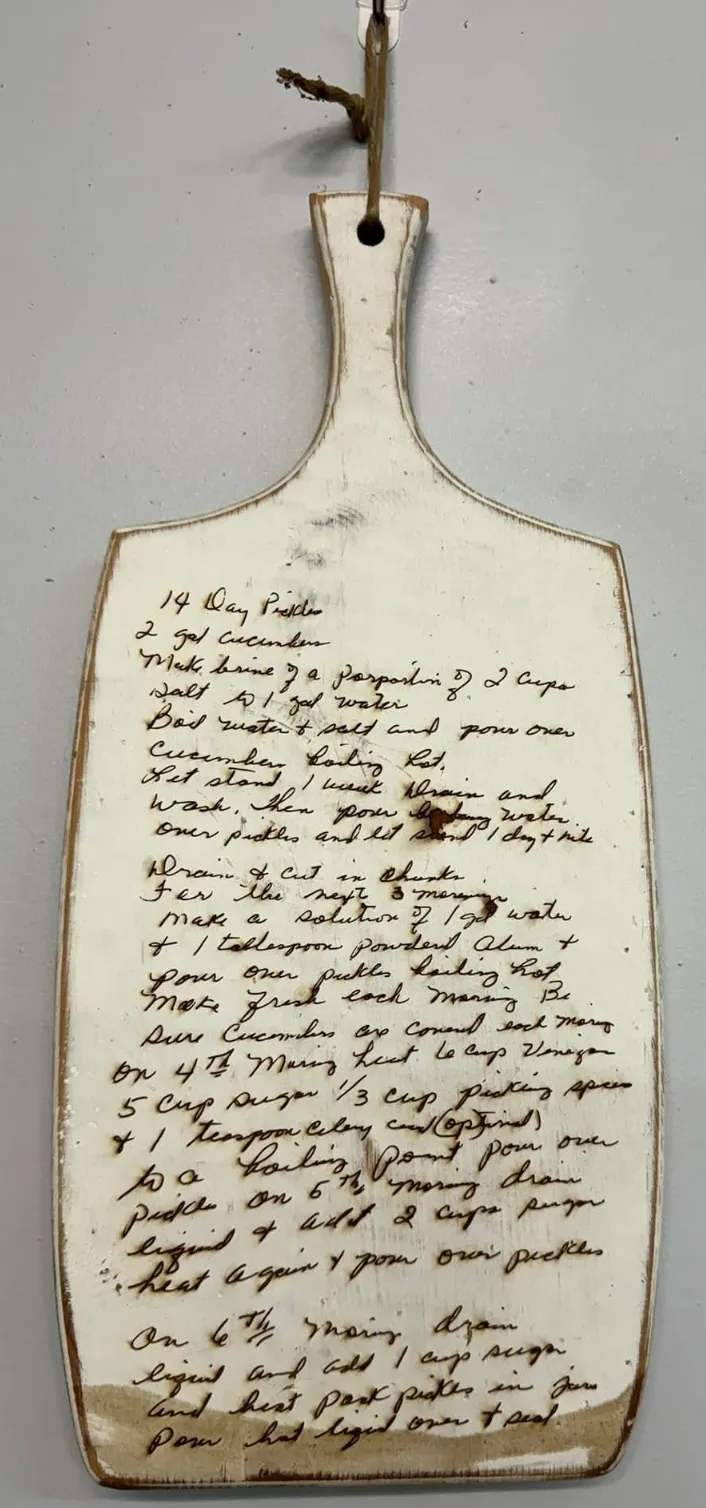 14 Day Pickles
2 gal cucumbers
Make brine of a porportin of 2 Cups
salt to 1 gal water
Boil water + salt and pour over
cucumbers boiling hot.
Let stand 1 week Drain and
wash. Then pour water
over pickles and let stand 1 day + nite
Drain & cut in chunks
For the next 3 mornings
Make a solution of 1 gal water
& 1 tablespoon powderd Alum +
pour over pickles boiling hot
Make fresh each morning Be
sure Cucumbers are coverd each morning
on 4TH Morning heat 6 cup Vinegar
5 cup sugar 1/3 cup pickling spices
& 1 teaspoon celery seed (optinal)
to a boiling point pour over
pickles on 5Th morning drain
liquid & add 2 cups sugar
heat again & pour over pickles
On 6Th morning drain
liquid and add 1 cup sugar
and heat Pack pickles in jars
Pour hot liqid over + seal.